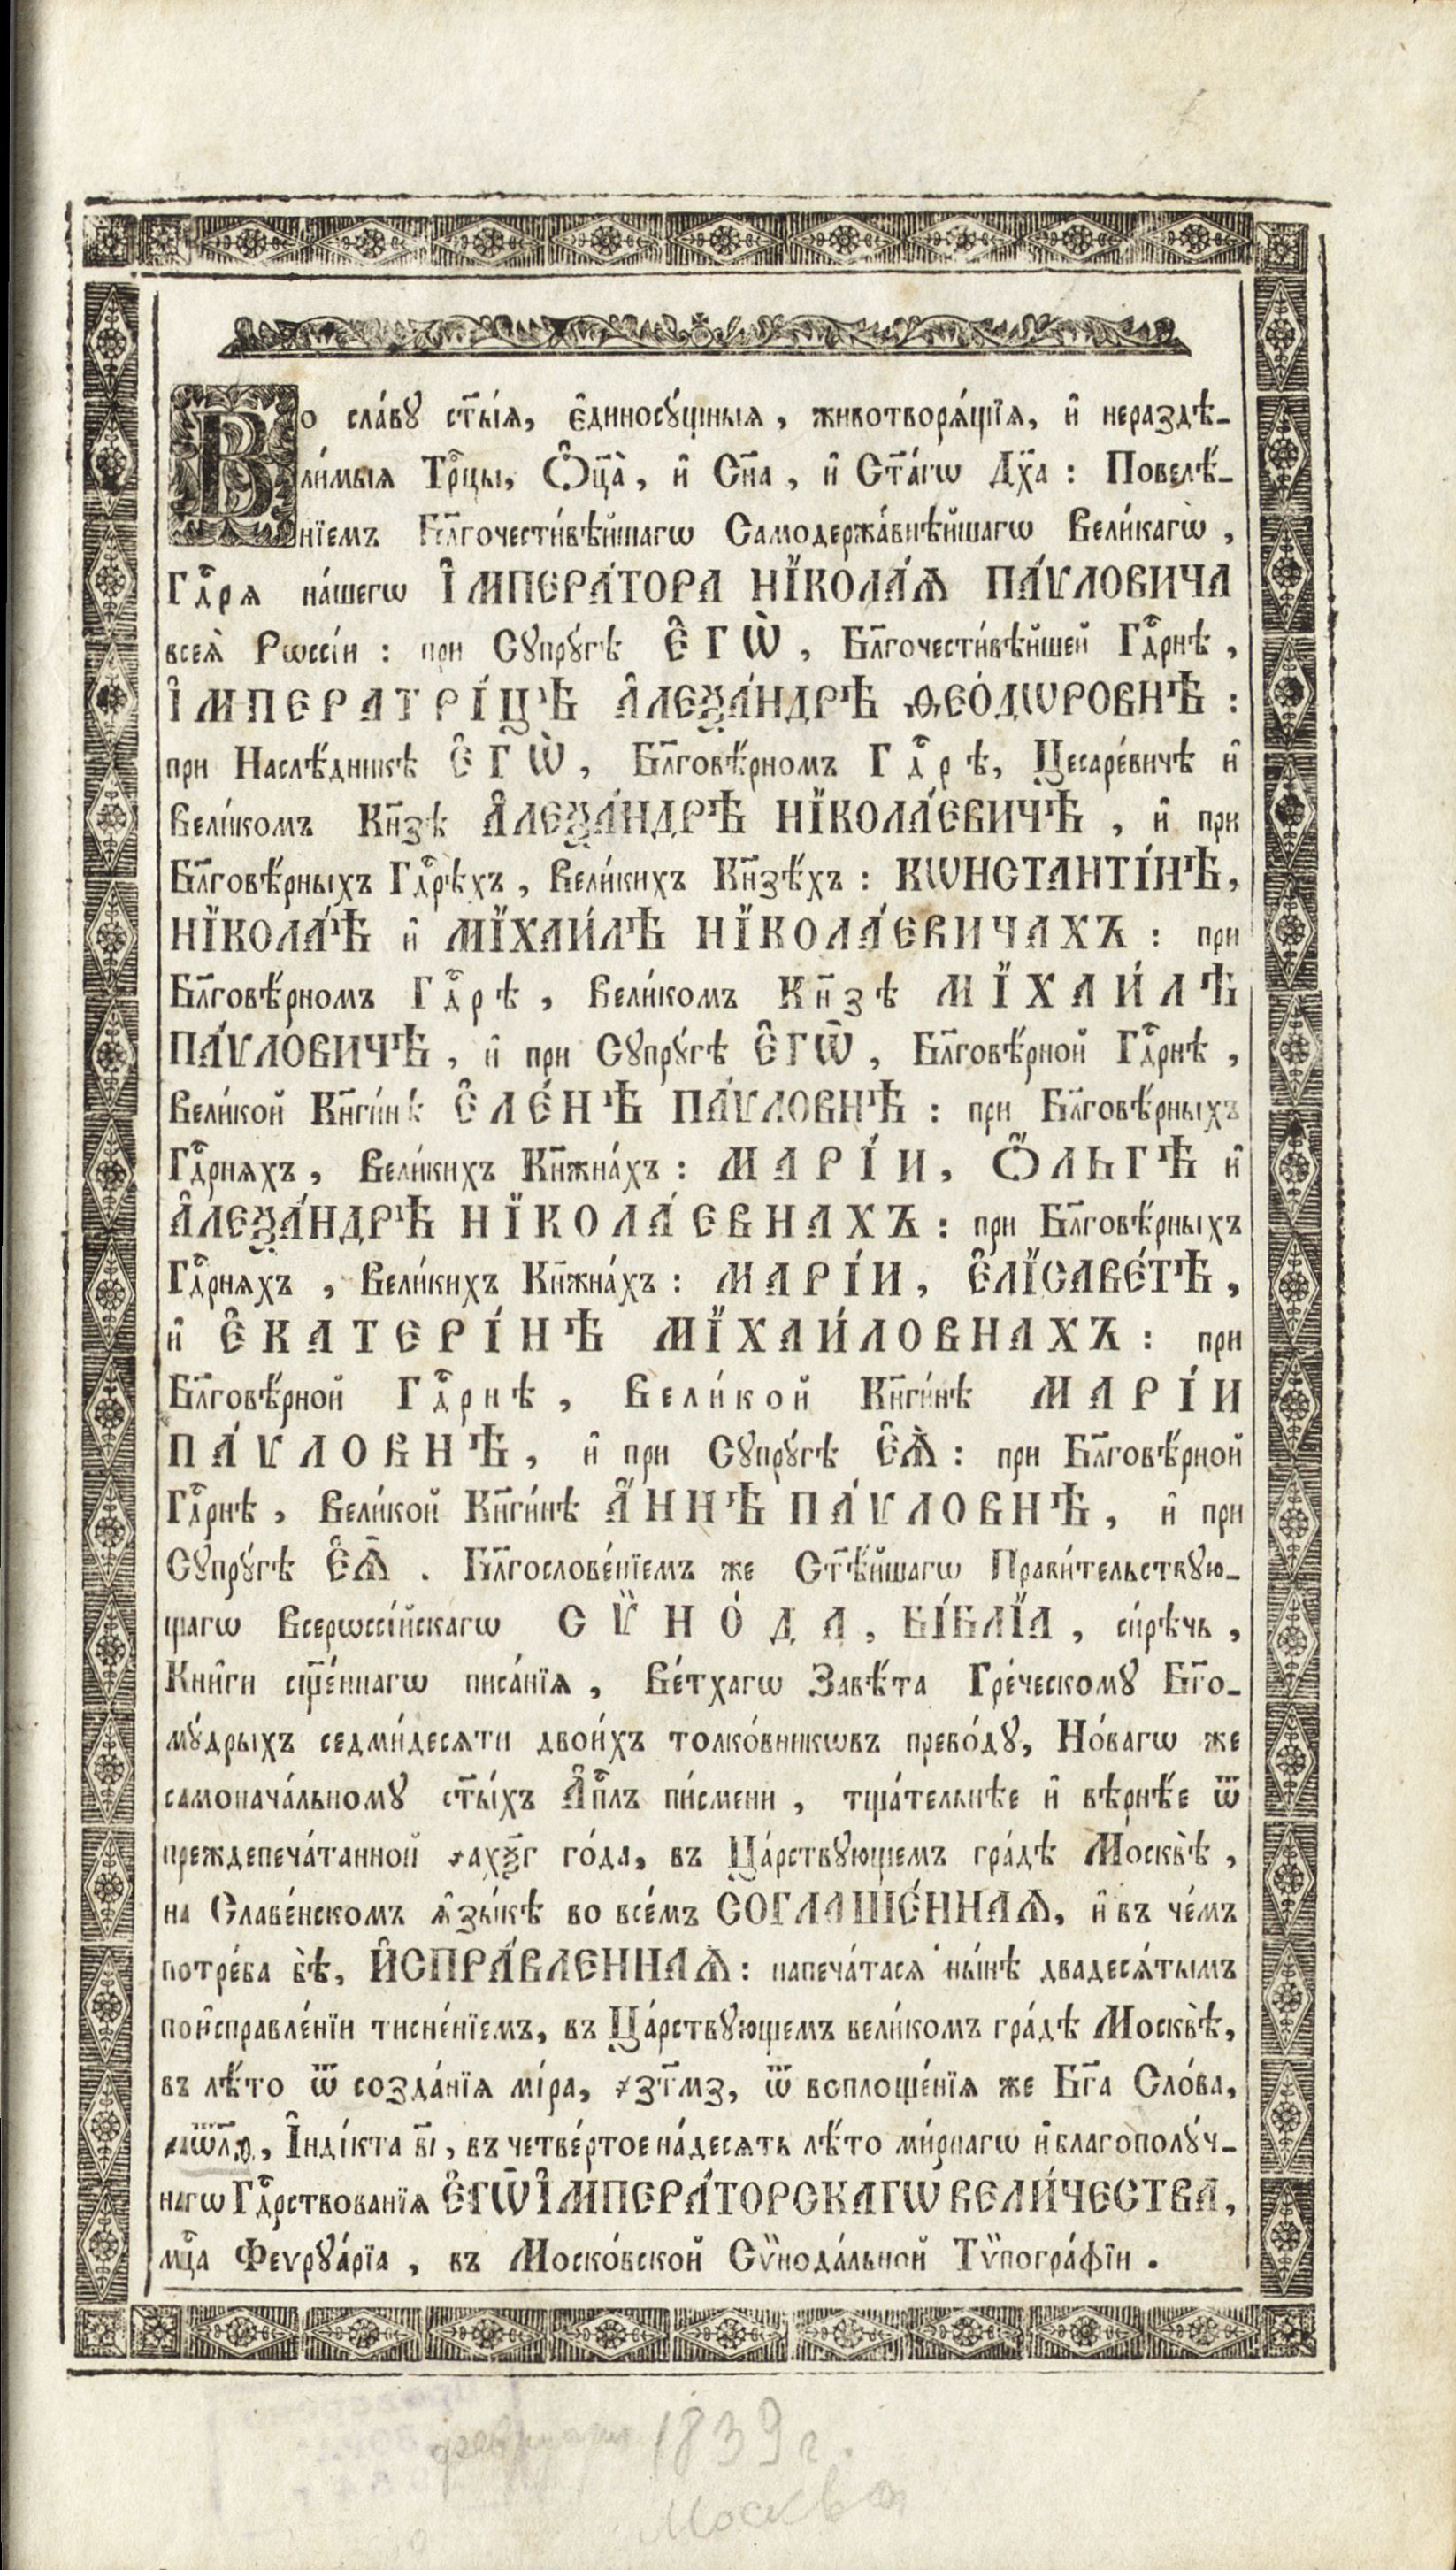 Во сла́вꙋ ст҃ы́ѧ, є҆диносꙋ́щныѧ, животворѧ́щїѧ, и҆ нераздѣ-
ли́мыѧ Трⷪ҇цы, Ѻ҆ц҃а̀, и҆ Сн҃а, и҆ Ст҃а́гѡ Дх҃а : Повелѣ́-
нїемъ Бл҃гочести́вѣйшагѡ Самодержа́внѣйшагѡ Вели́кагѡ,
Гдⷭ҇рѧ на́шегѡ І҆МПЕРА́ТОРА НЇКОЛА́Ѧ ПА́ѴЛОВИЧА
всеѧ̀ Рѡссі́и : при Сꙋпрꙋ́гѣ Є҆ГѠ̀, Бл҃гочести́вѣйшей Гдⷭ҇рнѣ,
І҆МПЕРАТРІ́ЦѢ А҆ЛЕѮА́НДРѢ ѲЕО́ДѠРОВНѢ :
при Наслѣ́дникѣ Є҆ГѠ̀, Бл҃говѣ́рномъ Гдⷭ҇рѣ, Цесаре́вичѣ и҆
Вели́комъ Кн҃зѣ А҆ЛЕѮА́НДРѢ НЇКОЛА́ЕВИЧѢ, и҆ при
Бл҃говѣ́рныхъ Гдⷭ҇рѣ́хъ, Вели́кихъ Кн҃зѣ́хъ : КѠНСТАНТІ́НѢ,
НЇКОЛА́Ѣ и҆ МЇХАИ́ЛѢ НЇКОЛА́ЕВИЧАХЪ : при
Бл҃говѣ́рномъ Гдⷭ҇рѣ, Вели́комъ Кн҃зѣ МЇХАИ́ЛѢ
ПА́ѴЛОВИЧѢ, и҆ при Сꙋпрꙋ́гѣ Є҆ГѠ̀, Бл҃говѣ́рной Гдⷭ҇рнѣ,
Вели́кой Кн҃ги́нѣ Є҆ЛЕ́НѢ ПА́ѴЛОВНѢ : при Бл҃говѣ́рныхъ
Гдⷭ҇рнѧхъ, Вели́кихъ Кн҃жна́хъ : МАРІ́И, Ѻ҆́ЛЬГѢ и҆
А҆ЛЕѮА́НДРѢ НЇКОЛА́ЕВНАХЪ : при Бл҃говѣ́рныхъ
Гдⷭ҇рнѧхъ, Вели́кихъ Кн҃жна́хъ : МАРІ́И, Є҆ЛЇСАВЕ́ТѢ,
и҆ Є҆КАТЕРІ́НѢ МЇХАИ́ЛОВНАХЪ : при
Бл҃говѣ́рной Гдⷭ҇рнѣ, Вели́кой Кн҃ги́нѣ МАРІ́И
ПА́ѴЛОВНѢ, и҆ при Сꙋпрꙋ́гѣ Є҆Ѧ̀ : при Бл҃говѣ́рной
Гдⷭ҇рнѣ, Вели́кой Кн҃ги́нѣ А҆́ННѢ ПА́ѴЛОВНѢ, и҆ при
Сꙋпрꙋ́гѣ Є҆Ѧ̀. Бл҃гослове́нїемъ же Ст҃ѣ́йшагѡ Прави́тельствꙋю-
щагѡ Всерѡссі́йскагѡ СѴ̈НО́ДА, БІ́БЛЇА, си́рѣчь,
Кни҄ги сщ҃е́ннагѡ писа́нїѧ, Ве́тхагѡ Завѣ́та Гре́ческомꙋ Бг҃о-
мꙋ́дрыхъ седми́десѧти двои́хъ толко́вникѡвъ прево́дꙋ, Но́вагѡ же
самонача́льномꙋ ст҃ы́хъ А҆пⷭ҇лъ пи́смени, тща́тельнѣе и҆ вѣрнѣ́е ѿ
преждепеча́танной ҂аѱѯ҃г го́да, въ Ца́рствꙋющемъ гра́дѣ Москвѣ̀,
на Славе́нскомъ ѧ҆зы́кѣ во все́мъ СОГЛАШЕ́ННАѦ, и҆ въ че́мъ
потре́ба бѣ̀, И҆СПРА́ВЛЕННАѦ : напеча́тасѧ ны́нѣ двадесѧ́тымъ
поиспра́вле́нїи тисне́нїемъ, въ Ца́рствꙋющемъ вели́комъ гра́дѣ Москвѣ̀,
въ лѣ́то ѿ созда́нїѧ мі́ра, ҂зт҃мз, ѿ воплоще́нїѧ же Бг҃а Сло́ва,
҂аѿл҃ѳ, І҆нді́кта в҃і, въ четве́ртоенадесѧть лѣ́то ми́рнагѡ и҆ благополꙋ́ч-
нагѡ Гдⷭ҇рствованїѧ Є҆ГѠ̀ І҆МПЕРА́ТОРСКАГѠ ВЕЛИ́ЧЕСТВА,
мцⷭ҇а Феѵрꙋа́рїа, въ Моско́вской Сѷнода́льной Тѷпогра́фїи.
февраль 1839 г.
Москва